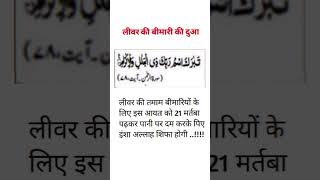 लीवर की बीमारी की दुआ
تَبٰرَكَ اسْمُ رَبِّكَ ذِی الْجَلٰلِ وَالْاِكْرَامِ
سورۃ الرحمٰن۔ آیت، ۷۸
लीवर की तमाम बीमारियों के
लिए इस आयत को 21 मर्तबा
पढ़कर पानी पर दम करके पिए
इंशा अल्लाह शिफा होगी ..!!!!